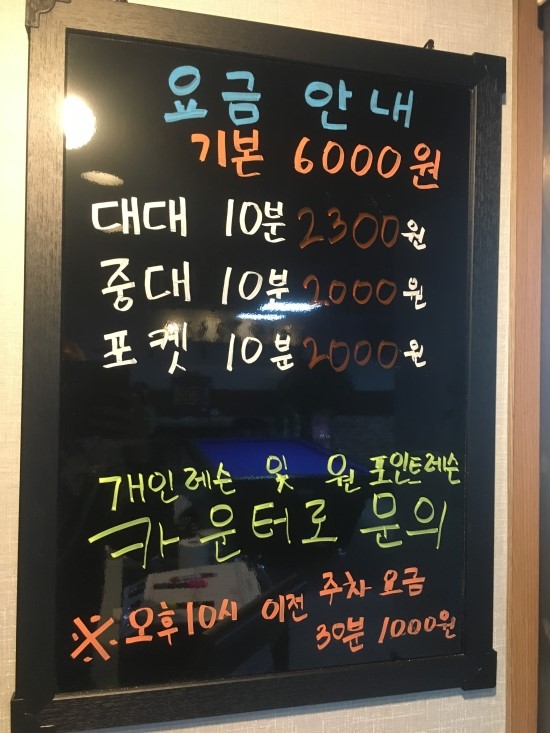 요금 안내
기본 6000원
대대 10분 2300원
중대 10분 2000원
포켓 10분 2000원
개인레슨 및 원포인트레슨
카운터로 문의
※ 오후10시 이전 주차 요금
30분 1000원